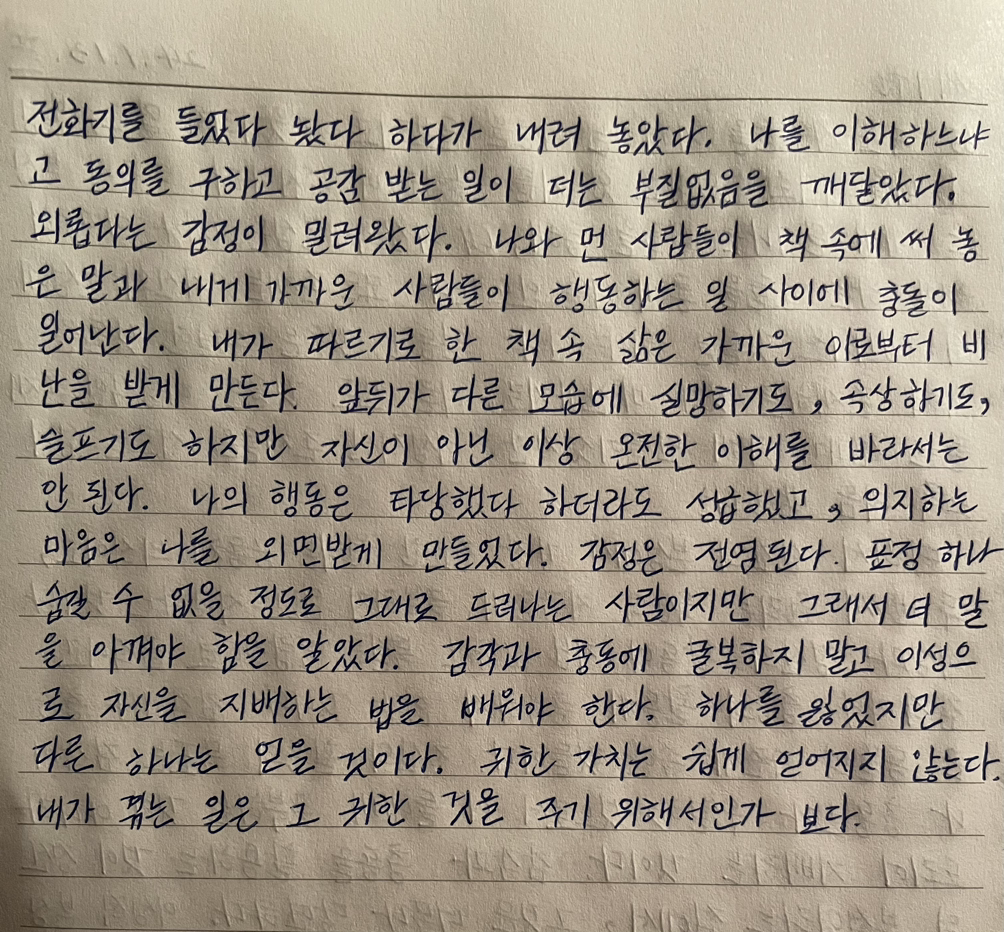 전화기를 들었다 놨다 하다가 내려 놓았다. 나를 이해하느냐
고 동의를 구하고 공감 받는 일이 더는 부질없음을 깨달았다.
외롭다는 감정이 밀려왔다. 나와 먼 사람들이 책 속에 써 놓
은 말과 내게 가까운 사람들이 행동하는 일 사이에 충돌이
일어난다. 내가 따르기로 한 책 속 삶은 가까운 이로부터 비
난을 받게 만든다. 앞뒤가 다른 모습에 실망하기도, 속상하기도,
슬프기도 하지만 자신이 아닌 이상 온전한 이해를 바라서는
안 된다. 나의 행동은 타당했다 하더라도 성급했고, 의지하는
마음은 나를 외면받게 만들었다. 감정은 전염된다. 표정 하나
숨길 수 없을 정도로 그대로 드러나는 사람이지만 그래서 더 말
을 아껴야 함을 알았다. 감각과 충동에 굴복하지 말고 이성으
로 자신을 지배하는 법을 배워야 한다. 하나를 잃었지만
다른 하나는 얻을 것이다. 귀한 가치는 쉽게 얻어지지 않는다.
내가 겪는 일은 그 귀한 것을 주기 위해서인가 보다.